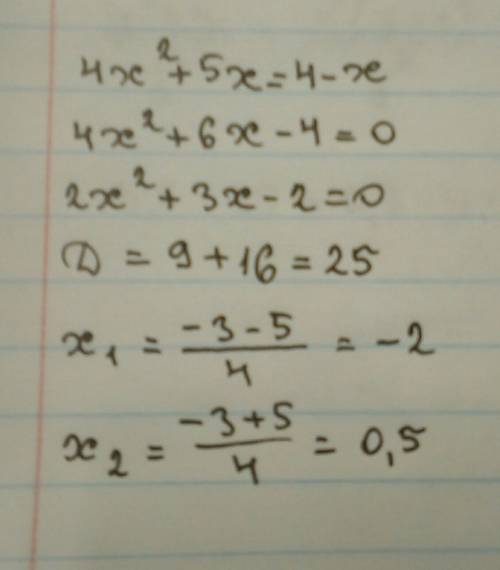 4x² + 5x = 4 - x
4x² + 6x - 4 = 0
2x² + 3x - 2 = 0
D = 9 + 16 = 25
x₁ = (-3 - 5)/4 = -2
x₂ = (-3 + 5)/4 = 0,5